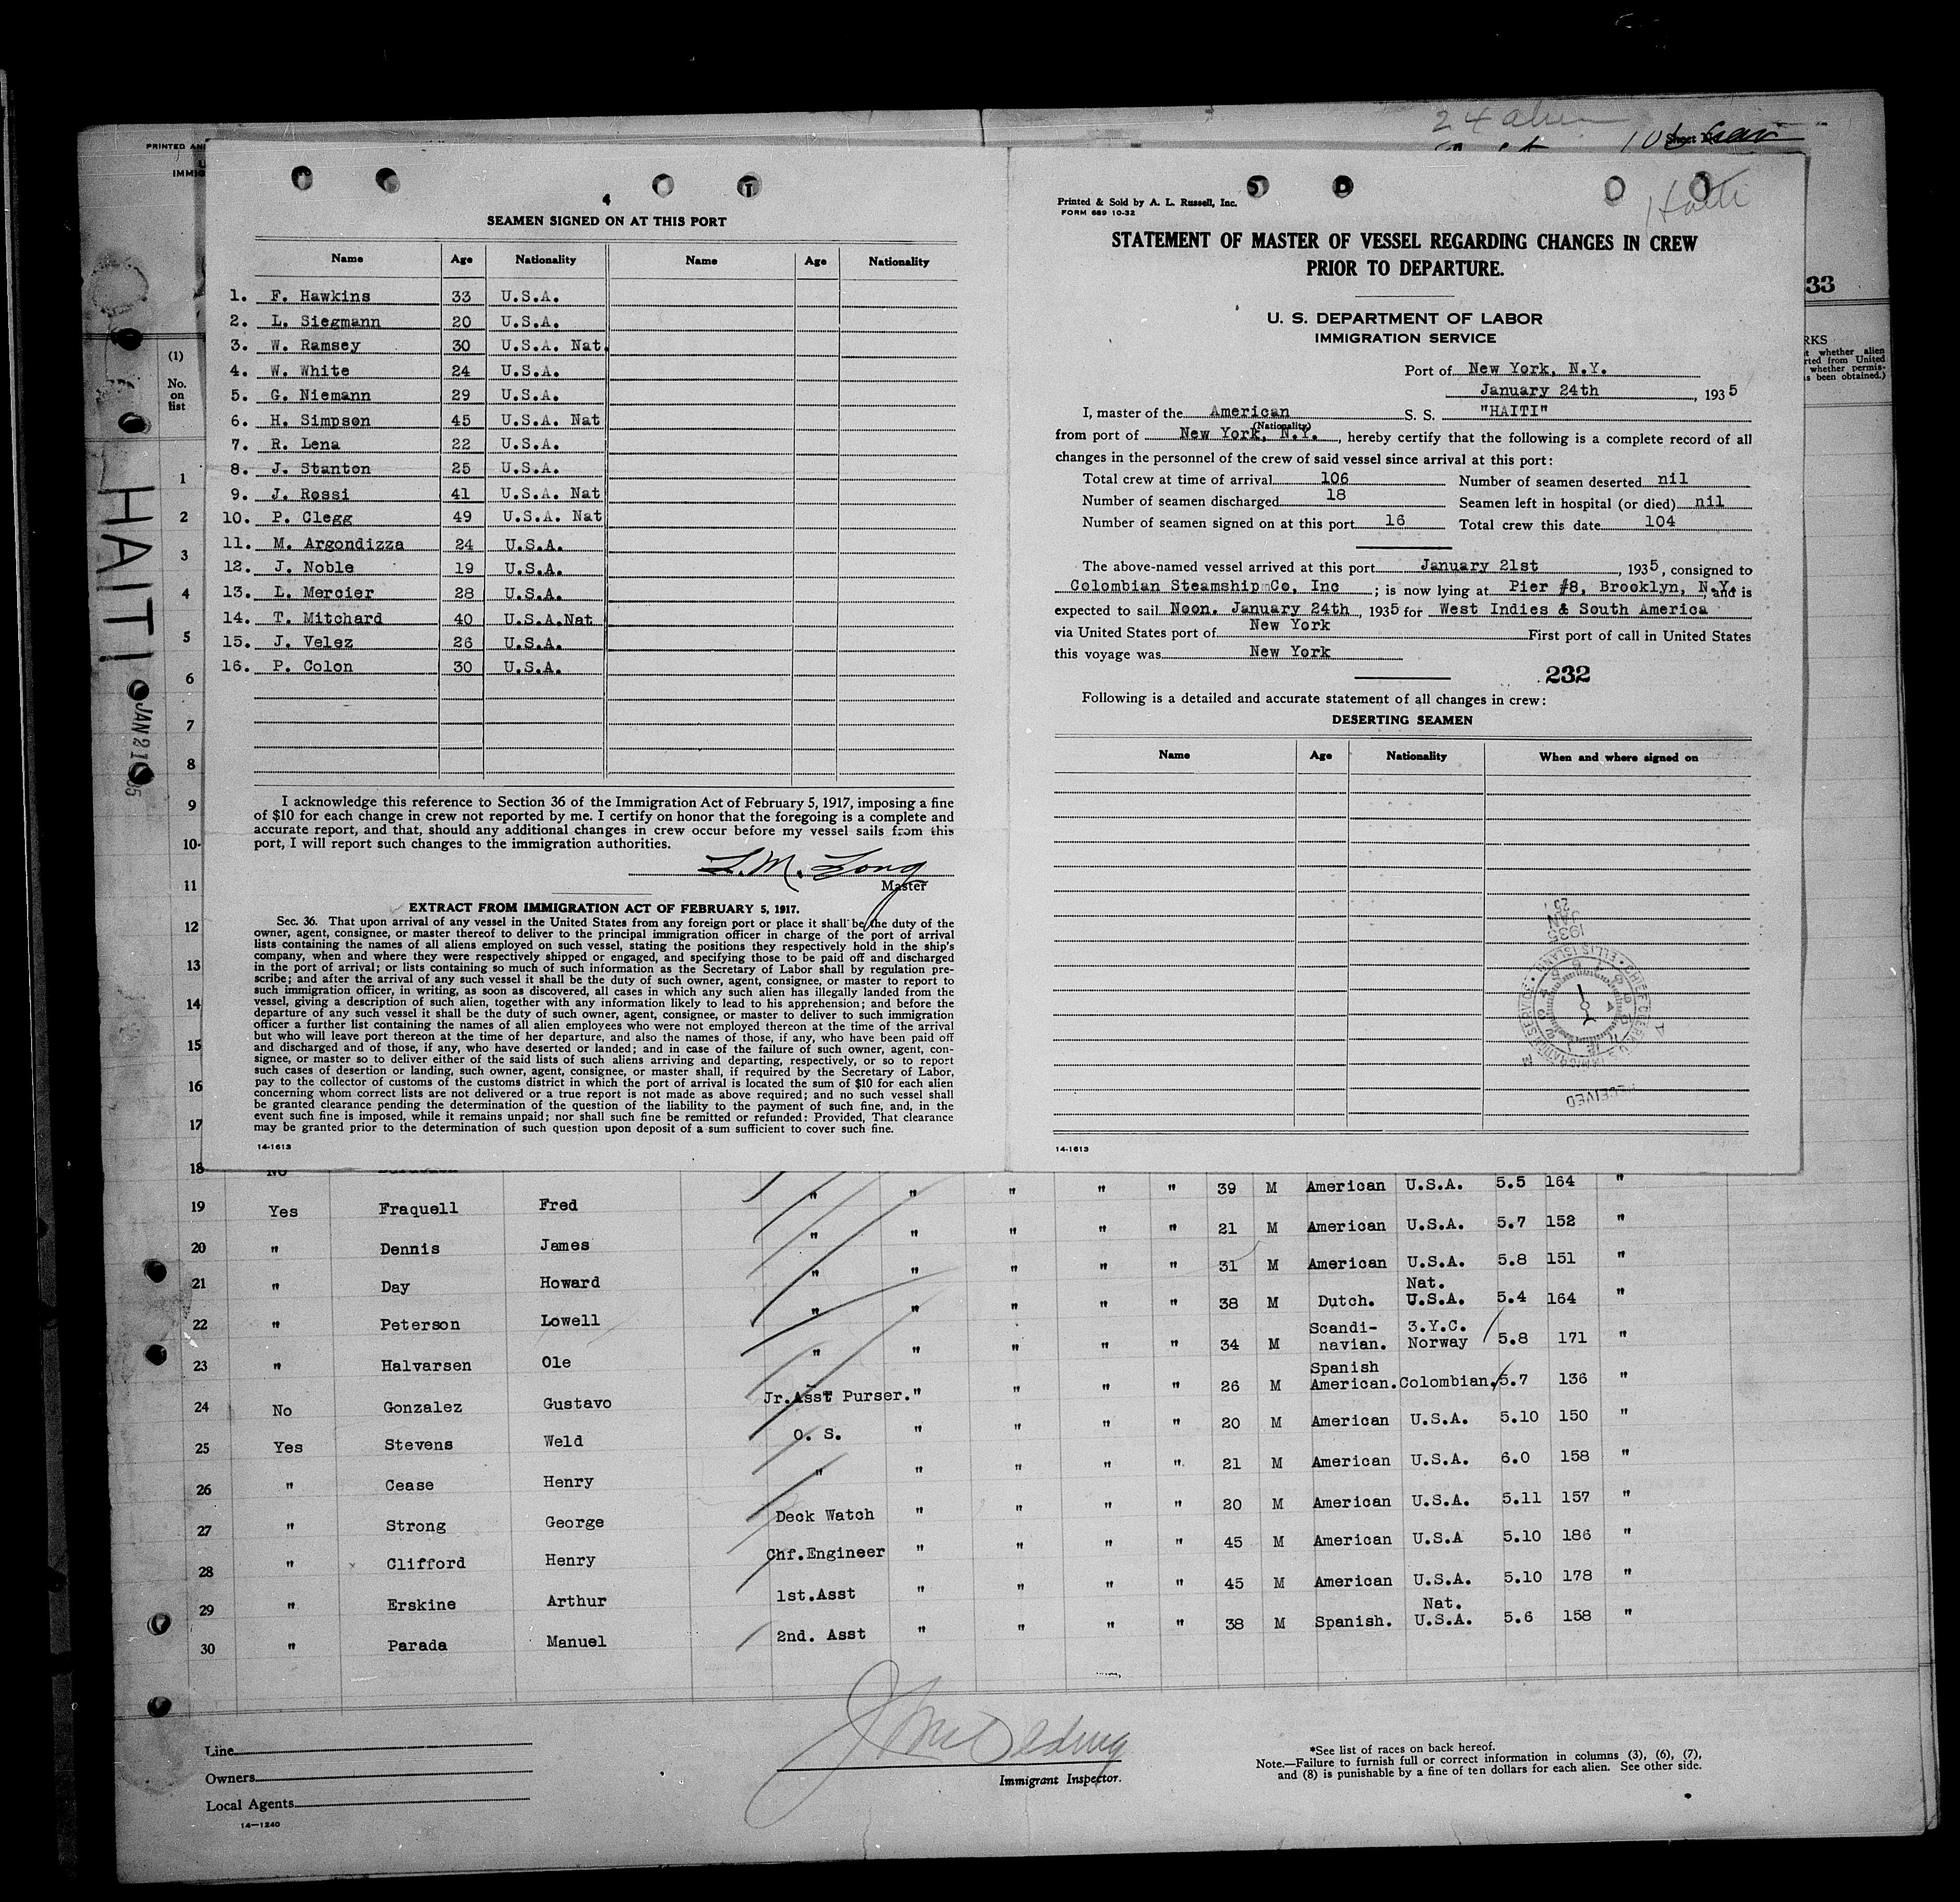 24 alien
PRINTED AN
IMMIG
4
SEAMEN SIGNED ON AT THIS PORT
Name Age Nationality Name Age Nationality
1. F. Hawkins 33 U.S.A.
2. L. Siegmann 20 U.S.A.
3. W. Ramsey 30 U.S.A. Nat.
4. W. White 24 U.S.A.
5. G. Niemann 29 U.S.A.
6. H. Simpson 45 U.S.A. Nat
7. R. Lena 22 U.S.A.
8. J. Stanton 25 U.S.A.
9. J. Rossi 41 U.S.A. Nat
10. P. Clegg 49 U.S.A. Nat
11. M. Argondizza 24 U.S.A.
12. J. Noble 19 U.S.A.
13. L. Mercier 28 U.S.A.
14. T. Mitchard 40 U.S.A.Nat
15. J. Velez 26 U.S.A.
16. P. Colon 30 U.S.A.
I acknowledge this reference to Section 36 of the Immigration Act of February 5, 1917, imposing a fine
of $10 for each change in crew not reported by me. I certify on honor that the foregoing is a complete and
accurate report, and that, should any additional changes in crew occur before my vessel sails from this
port, I will report such changes to the immigration authorities.
L.M. Long
Master
EXTRACT FROM IMMIGRATION ACT OF FEBRUARY 5, 1917.
Sec. 36. That upon arrival of any vessel in the United States from any foreign port or place it shall be the duty of the
owner, agent, consignee, or master thereof to deliver to the principal immigration officer in charge of the port of arrival
lists containing the names of all aliens employed on such vessel, stating the positions they respectively hold in the ship's
company, when and where they were respectively shipped or engaged, and specifying those to be paid off and discharged
in the port of arrival; or lists containing so much of such information as the Secretary of Labor shall by regulation pre-
scribe; and after the arrival of any such vessel it shall be the duty of such owner, agent, consignee, or master to report to
such immigration officer, in writing, as soon as discovered, all cases in which any such alien has illegally landed from the
vessel, giving a description of such alien, together with any information likely to lead to his apprehension; and before the
departure of any such vessel it shall be the duty of such owner, agent, consignee, or master to deliver to such immigration
officer a further list containing the names of all alien employees who were not employed thereon at the time of the arrival
but who will leave port thereon at the time of her departure, and also the names of those, if any, who have been paid off
and discharged and of those, if any, who have deserted or landed; and in case of the failure of such owner, agent, con-
signee, or master so to deliver either of the said lists of such aliens arriving and departing, respectively, or so to report
such cases of desertion or landing, such owner, agent, consignee, or master shall, if required by the Secretary of Labor,
pay to the collector of customs of the customs district in which the port of arrival is located the sum of $10 for each alien
concerning whom correct lists are not delivered or a true report is not made as above required; and no such vessel shall
be granted clearance pending the determination of the question of the liability to the payment of such fine, and, in the
event such fine is imposed, while it remains unpaid; nor shall such fine be remitted or refunded: Provided, That clearance
may be granted prior to the determination of such question upon deposit of a sum sufficient to cover such fine.
14-1613
Haiti
Printed & Sold by A. L. Russell, Inc.
FORM 689 10-32
STATEMENT OF MASTER OF VESSEL REGARDING CHANGES IN CREW
PRIOR TO DEPARTURE.
U. S. DEPARTMENT OF LABOR
IMMIGRATION SERVICE
Port of New York, N.Y.
January 24th, 1935
I, master of the American S. S. "HAITI"
(Nationality)
from port of New York, N.Y., hereby certify that the following is a complete record of all
changes in the personnel of the crew of said vessel since arrival at this port:
Total crew at time of arrival 106 Number of seamen deserted nil
Number of seamen discharged 18 Seamen left in hospital (or died) nil
Number of seamen signed on at this port 16 Total crew this date 104
The above-named vessel arrived at this port January 21st, 1935, consigned to
Colombian Steamship Co, Inc; is now lying at Pier #8, Brooklyn, N.Y. and is
expected to sail Noon. January 24th, 1935 for West Indies & South America
via United States port of New York First port of call in United States
this voyage was New York
232
Following is a detailed and accurate statement of all changes in crew:
DESERTING SEAMEN
Name Age Nationality When and where signed on
JAN
1935
RECEIVED
14-1613
33
RKS
whether alien
rted from United
whether permis-
s been obtained.)
(1)
No.
on
list
HAITI
JAN 21
1
2
3
4
5
6
7
8
9
10
11
12
13
14
15
16
17
18 No
19 Yes Fraquell Fred " " " " " 39 M American U.S.A. 5.5 164 "
20 " Dennis James " " " " " 21 M American U.S.A. 5.7 152 "
21 " Day Howard " " " " " 31 M American U.S.A. 5.8 151 "
22 " Peterson Lowell " " " " " 38 M Dutch. Nat. U.S.A. 5.4 164 "
23 " Halvarsen Ole " " " " " 34 M Scandi- navian. 3.Y.C. Norway 5.8 171 "
24 No Gonzalez Gustavo Jr.Asst Purser. " " " " 26 M Spanish American. Colombian. 5.7 136 "
25 Yes Stevens Weld O. S. " " " " 20 M American U.S.A. 5.10 150 "
26 " Cease Henry " " " " " 21 M American U.S.A. 6.0 158 "
27 " Strong George Deck Watch " " " " 20 M American U.S.A. 5.11 157 "
28 " Clifford Henry Chf.Engineer " " " " 45 M American U.S.A 5.10 186 "
29 " Erskine Arthur 1st.Asst " " " " 45 M American U.S.A. 5.10 178 "
30 " Parada Manuel 2nd. Asst " " " " 38 M Spanish. Nat. U.S.A. 5.6 158 "
Line
Owners
Local Agents
14-1240
Immigrant Inspector.
*See list of races on back hereof.
Note.—Failure to furnish full or correct information in columns (3), (6), (7),
and (8) is punishable by a fine of ten dollars for each alien. See other side.